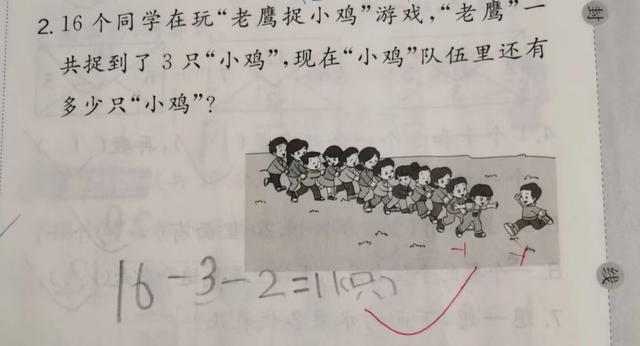 2.16个同学在玩“老鹰捉小鸡”游戏,“老鹰”一
共捉到了3只“小鸡”,现在“小鸡”队伍里还有
多少只“小鸡”?
16-3-2=11(只)
封
线